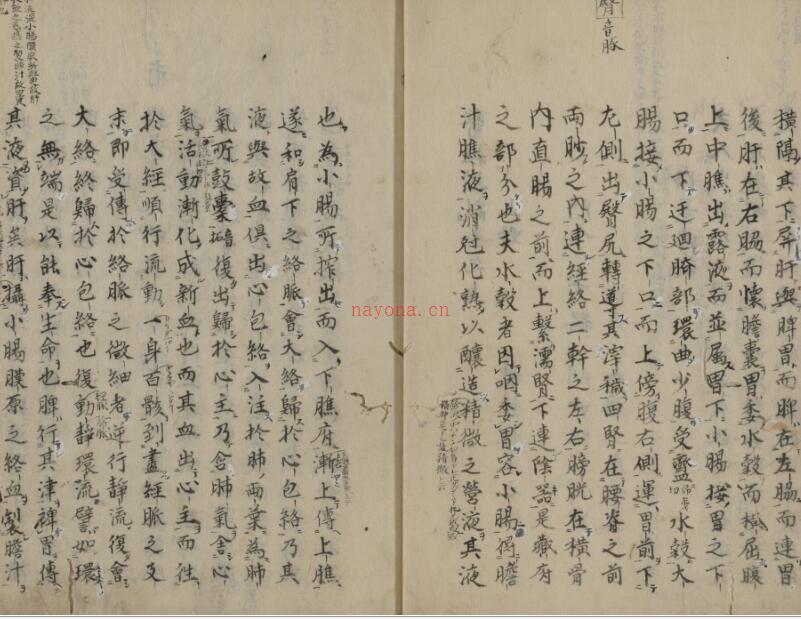 臀音豚
橫隔其下屏肝與脾胃而脾在左腸而連胃
後肝在右腸而懷膽囊胃委水穀而橫屈膜
上中膲出露液而並屬胃下小腸接胃之下
口而下迂迴臍部環曲少腹受盛水穀大
腸接小腸之下口而上傍腹右側運胃前下
左側出臀尻轉導其滓穢四腎在腰脊之前
兩眇之内連經絡二幹之左右膀胱在橫骨
内直腸之前而上繫濡腎下連陰器是藏府
之部分也夫水穀者因咽委胃容小腸得膽
汁膲液消化熟以釀造精微之營液其液
也為小腸所搾出而入下膲府漸上傳上膲
遂和肩下之絡脈會大絡歸於心包絡乃其
液與故血俱出心包絡入注於肺兩葉為肺
氣所鼓橐復出歸於心主乃含肺氣舍心
氣活動漸化成新血也而其血出心主而往
於大經順行流動一身百骸到盡經脈之支
末即受傳於絡脈之微細者逆行靜流復會
大絡終歸於心包絡也復動靜環流譬如環
之無端是以能奉生命也脾行其津裨胃傳
其液資肝矣肝攝小腸膜原之絡血製膽汁
nayona.cn